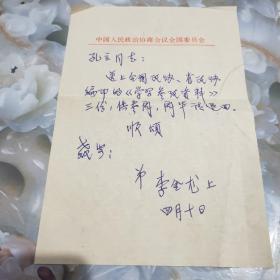 中国人民政治协商会议全国委员会
孔立同志：
送上全国政协、省政协
编印的《学习参考资料》
三份，供参阅，阅毕请退回。
顺颂
弟 李金龙上
四月十日